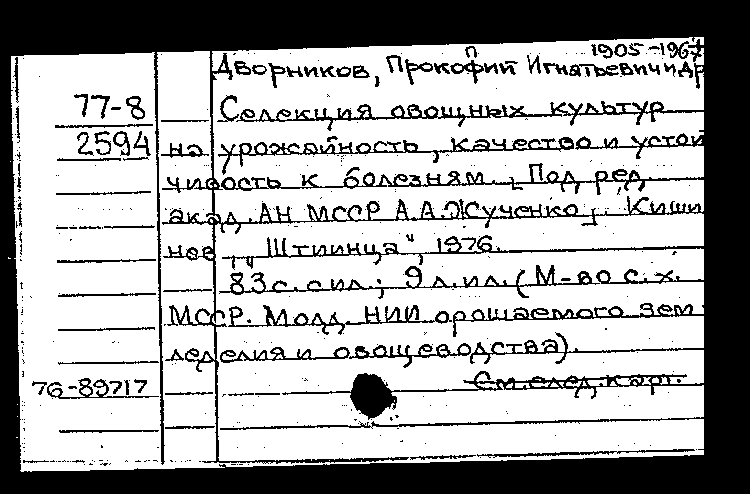 1905-1967
п
Дворников, Прокофий Игнатьевич и др
77-8 Селекция овощных культур
2594 на урожайность, качество и устой
чивость к болезням. [Под ред.
акад. АН МССР А.А.Жученко]. Киши
нев, „Штиинца", 1976.
83 с. с ил.; 9 л. ил. (М-во с. х.
МССР. Молд. НИИ орошаемого зем
леделия и овощеводства).
76-89717 См. след. карт.